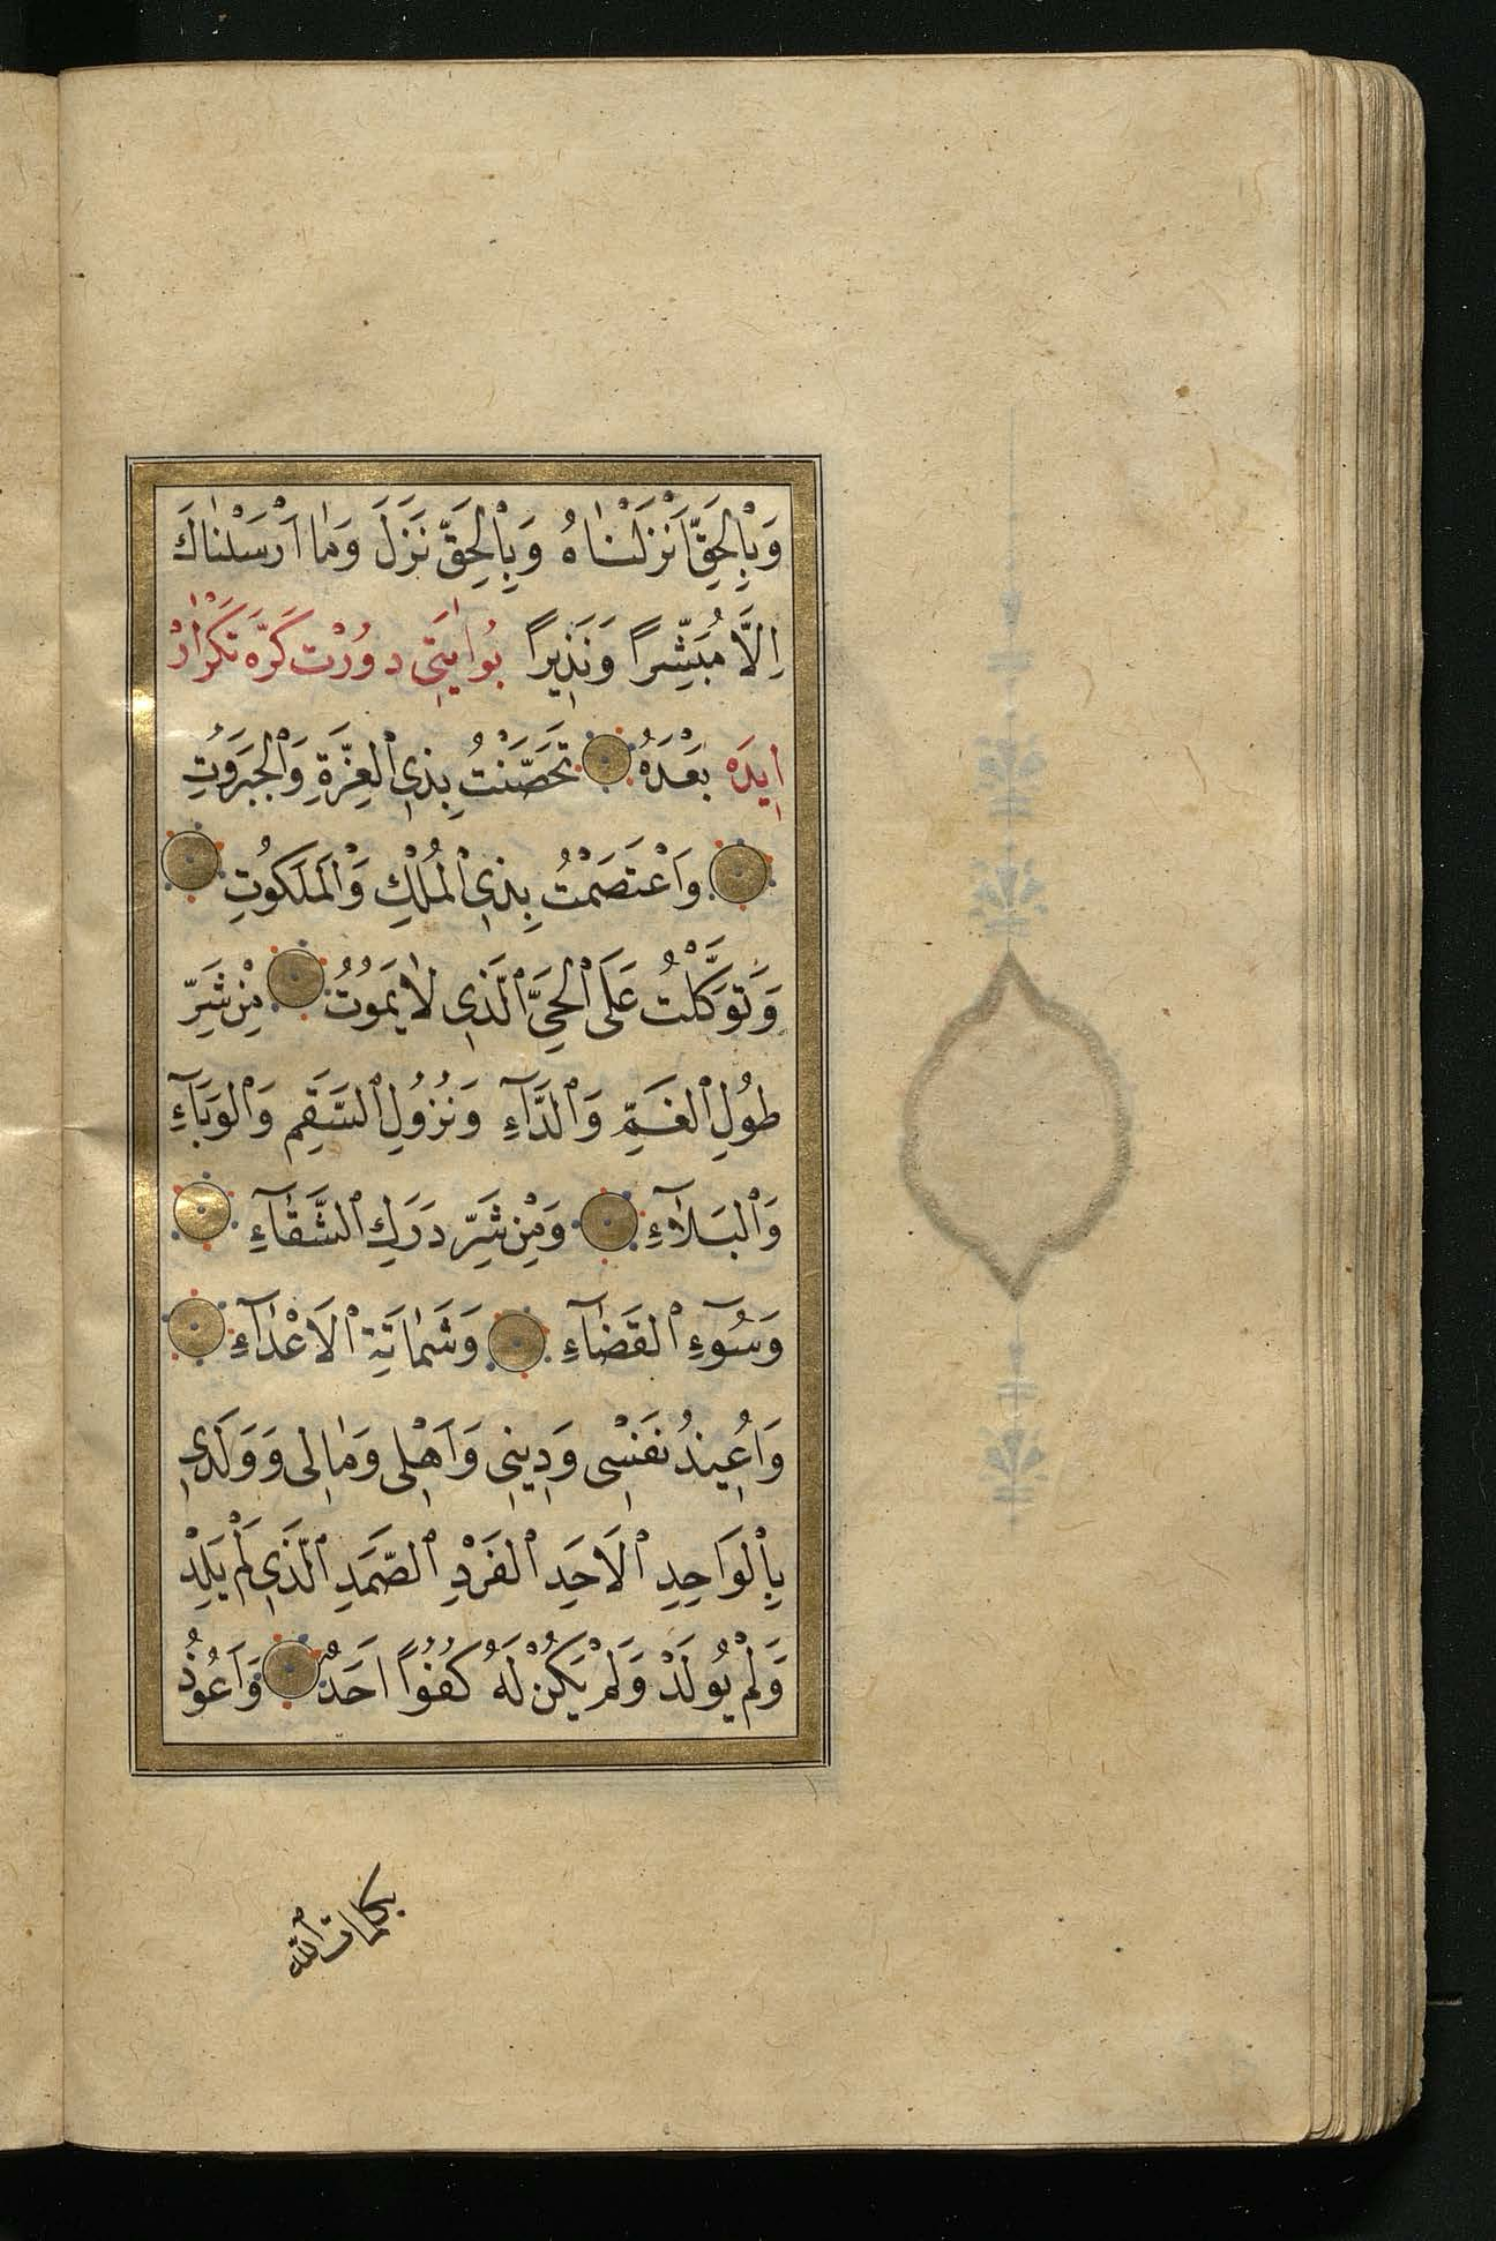 وَبِالْحَقِّ اَنْزَلْنَاهُ وَبِالْحَقِّ نَزَلَ وَمَا اَرْسَلْنَاكَ
اِلَّا مُبَشِّرًا وَنَذِيرًا بُو اٰيَتِى دورْت كَرَّه تَكْرَارْ
اِيدَه بَعْدَهُ تَحَصَّنْتُ بِذِى الْعِزَّةِ وَالْجَبَرُوتِ
وَاعْتَصَمْتُ بِذِى الْمُلْكِ وَالْمَلَكُوتِ
وَتَوَكَّلْتُ عَلَى الْحَىِّ الَّذِى لَا يَمُوتُ مِنْ شَرِّ
طُولِ الْغَمِّ وَالدَّآءِ وَنُزُولِ السَّقَمِ وَالْوَبَآءِ
وَالْبَلَآءِ وَمِنْ شَرِّ دَرَكِ الشَّقَآءِ
وَسُوٓءِ الْقَضَآءِ وَشَمَاتَةِ الْاَعْدَآءِ
وَاُعِيذُ نَفْسِى وَدِينِى وَاَهْلِى وَمَالِى وَوَلَدِى
بِالْوَاحِدِ الْاَحَدِ الْفَرْدِ الصَّمَدِ الَّذِى لَمْ يَلِدْ
وَلَمْ يُولَدْ وَلَمْ يَكُنْ لَهُ كُفُوًا اَحَدٌ وَاَعُوذُ
بكلمات الله